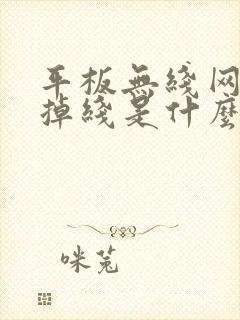 平板無綫网
掉綫是什麽
咪兎